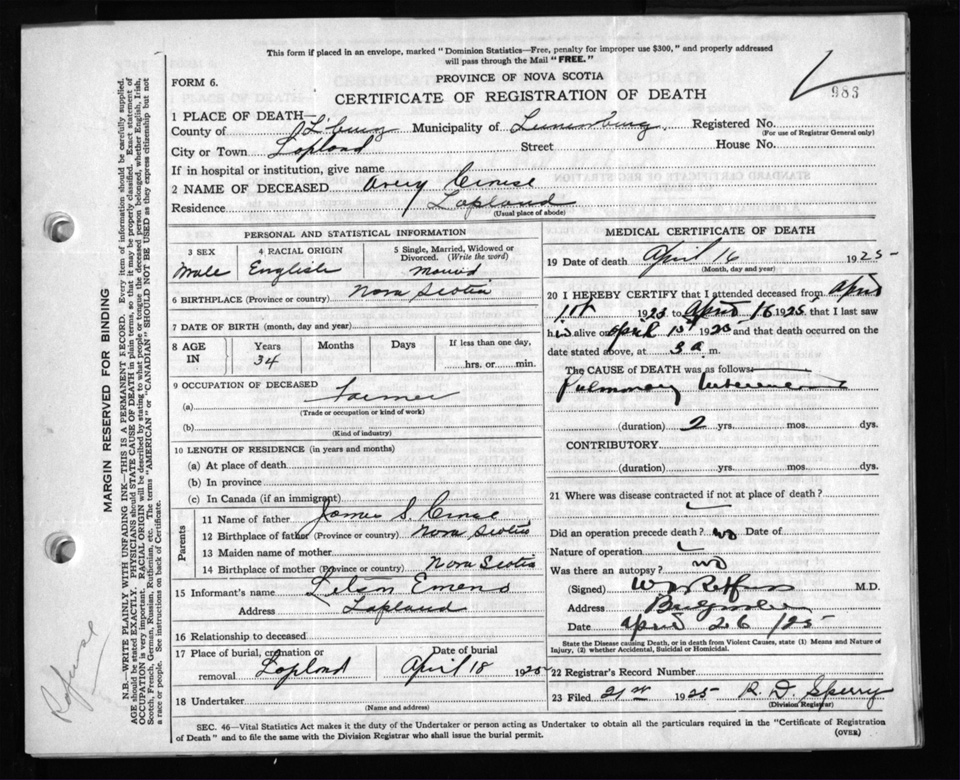 This form if placed in an envelope, marked "Dominion Statistics—Free, penalty for improper use $300," and properly addressed
will pass through the Mail "FREE."
FORM 6.
PROVINCE OF NOVA SCOTIA
CERTIFICATE OF REGISTRATION OF DEATH
983
1 PLACE OF DEATH—
County of L'burg Municipality of Lunenburg Registered No.
(For use of Registrar General only)
City or Town Lapland Street House No.
If in hospital or institution, give name
2 NAME OF DECEASED Avery
Residence Lapland
(Usual place of abode)
PERSONAL AND STATISTICAL INFORMATION
3 SEX 4 RACIAL ORIGIN 5 Single, Married, Widowed or
Divorced. (Write the word)
Male English Married
6 BIRTHPLACE (Province or country) Nova Scotia
7 DATE OF BIRTH (month, day and year)
8 AGE IN Years Months Days If less than one day,
34 hrs. or min.
9 OCCUPATION OF DECEASED
(a) Farmer
(Trade or occupation or kind of work)
(b)
(Kind of industry)
10 LENGTH OF RESIDENCE (in years and months)
(a) At place of death
(b) In province
(c) In Canada (if an immigrant)
Parents
11 Name of father James S.
12 Birthplace of father (Province or country) Nova Scotia
13 Maiden name of mother
14 Birthplace of mother (Province or country) Nova Scotia
15 Informant's name
Address Lapland
16 Relationship to deceased
17 Place of burial, cremation or Date of burial
removal Lapland April 18 1925
18 Undertaker
(Name and address)
MEDICAL CERTIFICATE OF DEATH
19 Date of death April 16 1925
(Month, day and year)
20 I HEREBY CERTIFY that I attended deceased from April
1st 1923 to April 16 1925 that I last saw
him alive on April 15th 1925 and that death occurred on
date stated above, at 3 a m.
The CAUSE of DEATH was as follows:
Pulmonary
(duration) 2 yrs. mos. dys.
CONTRIBUTORY
(duration) yrs. mos. dys.
21 Where was disease contracted if not at place of death?
Did an operation precede death? no Date of
Nature of operation
Was there an autopsy? no
(Signed) M.D.
Address Bridgewater
Date April 26 /25
State the Disease causing Death, or in death from Violent Causes, state (1) Means and Nature of
Injury, (2) whether Accidental, Suicidal or Homicidal.
22 Registrar's Record Number
23 Filed 21st 1925 R. D. Sperry
(Division Registrar)
SEC. 46—Vital Statistics Act makes it the duty of the Undertaker or person acting as Undertaker to obtain all the particulars required in the "Certificate of Registration
of Death" and to file the same with the Division Registrar who shall issue the burial permit.
(OVER)
MARGIN RESERVED FOR BINDING
N.B.—WRITE PLAINLY WITH UNFADING INK—THIS IS A PERMANENT RECORD. Every item of information should be carefully supplied.
AGE should be stated EXACTLY. PHYSICIANS should STATE CAUSE OF DEATH in plain terms, so that it may be properly classified. Exact statement of
OCCUPATION is very important. RACIAL ORIGIN will be described by stating to what people or tongue the deceased person belonged, whether English, Irish,
Scotch, French, German, Russian, Ruthenian, etc. The terms "AMERICAN" or "CANADIAN" SHOULD NOT BE USED as they express citizenship but not
a race or people. See instructions on back of Certificate.